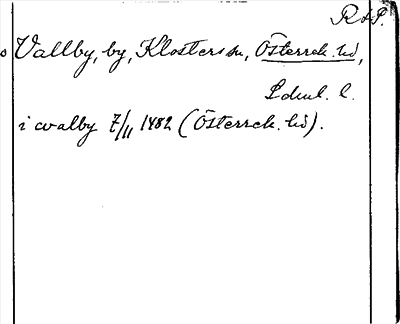 R & P.
Vallby, by, Klosters sn, Österrek. hd,
Sdml. l.
i walby 7/11 1482 (Österrek. hd).